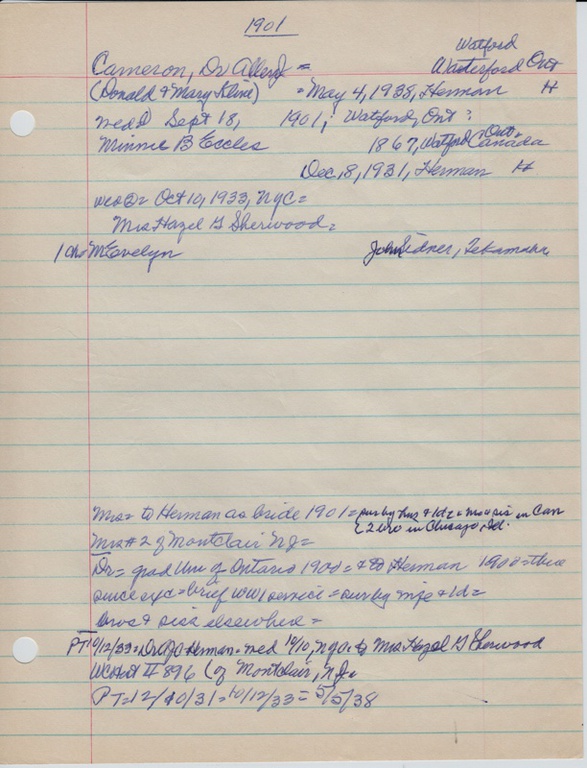 1901
Watford
Cameron, Dr Allen J = Waterford Ont
(Donald & Mary Kline) = May 4, 1938, Herman H
wed① Sept 18, 1901, Watford, Ont:
Minnie B Eccles 1867, Watford Ont. Canada
Dec, 8, 1931, Herman H
wed②= Oct 10, 1933, NYC=
Mrs Hazel G Sherwood=
1 ch= M Evelyn John Sidner, Tekamah
Mrs= to Herman as bride 1901= sur by hus & 1d= mo & sis in Can
& 2 bro in Chicago, Ill.
Mrs #2 of Montclair NJ=
Dr= grad Univ of Ontario 1900= to Herman 1900= there
since exc= brief WWI service= sur by wife & 1d=
bros & sis elsewhere=
PT 10/12/33= Dr AJC Herman= wed 10/10, NYC= to Mrs Hazel G Sherwood
WC Hist II 896 (of Montclair, NJ.
PT=12/10/31= 10/12/33= 5/5/38